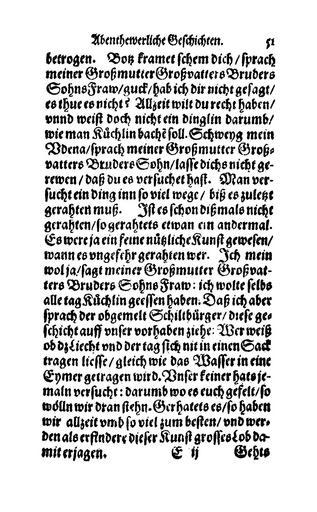 Abenthewerliche Geschichten. 51
betrogen. Botz kramet schem dich/sprach
meiner Großmutter Großvatters Bruders
Sohns Fraw/guck/hab ich dir nicht gesagt/
es thue es nicht? Allzeit wilt du recht haben/
vnnd weist doch nicht ein dinglin darumb/
wie man Küchlin bachẽ soll. Schweyg mein
Vdena/sprach meiner Großmutter Groß-
vatters Bruders Sohn/lasse dichs nicht ge-
rewen/daß du es versuchet hast. Man ver-
sucht ein ding inn so viel wege/biß es zuletzt
gerahten muß. Ist es schon dißmals nicht
gerahten/so gerahtets etwan ein andermal.
Es were ja ein feine nützliche Kunst gewesen/
wann es vngefehr gerahten wer. Ich mein
wol ja/sagt meiner Großmutter Großvat-
ters Bruders Sohns Fraw: ich wolte selbs
alle tag Küchlin geessen haben. Daß ich aber
sprach der obgemelt Schiltbürger/diese ge-
schicht auff vnser vorhaben ziehe: Wer weiß
ob dz Liecht vnd der tag sich nit in einen Sack
tragen liesse/gleich wie das Wasser in eine
Eymer getragen wird. Vnser keiner hats je-
maln versucht: darumb wo es euch gefelt/so
wölln wir dran stehn. Gerhatets es/so haben
wir allzeit vmb so viel zum besten/vnd wer-
den als erfinder dieser Kunst grosses Lob da-
mit erjagen. E ij Gehts